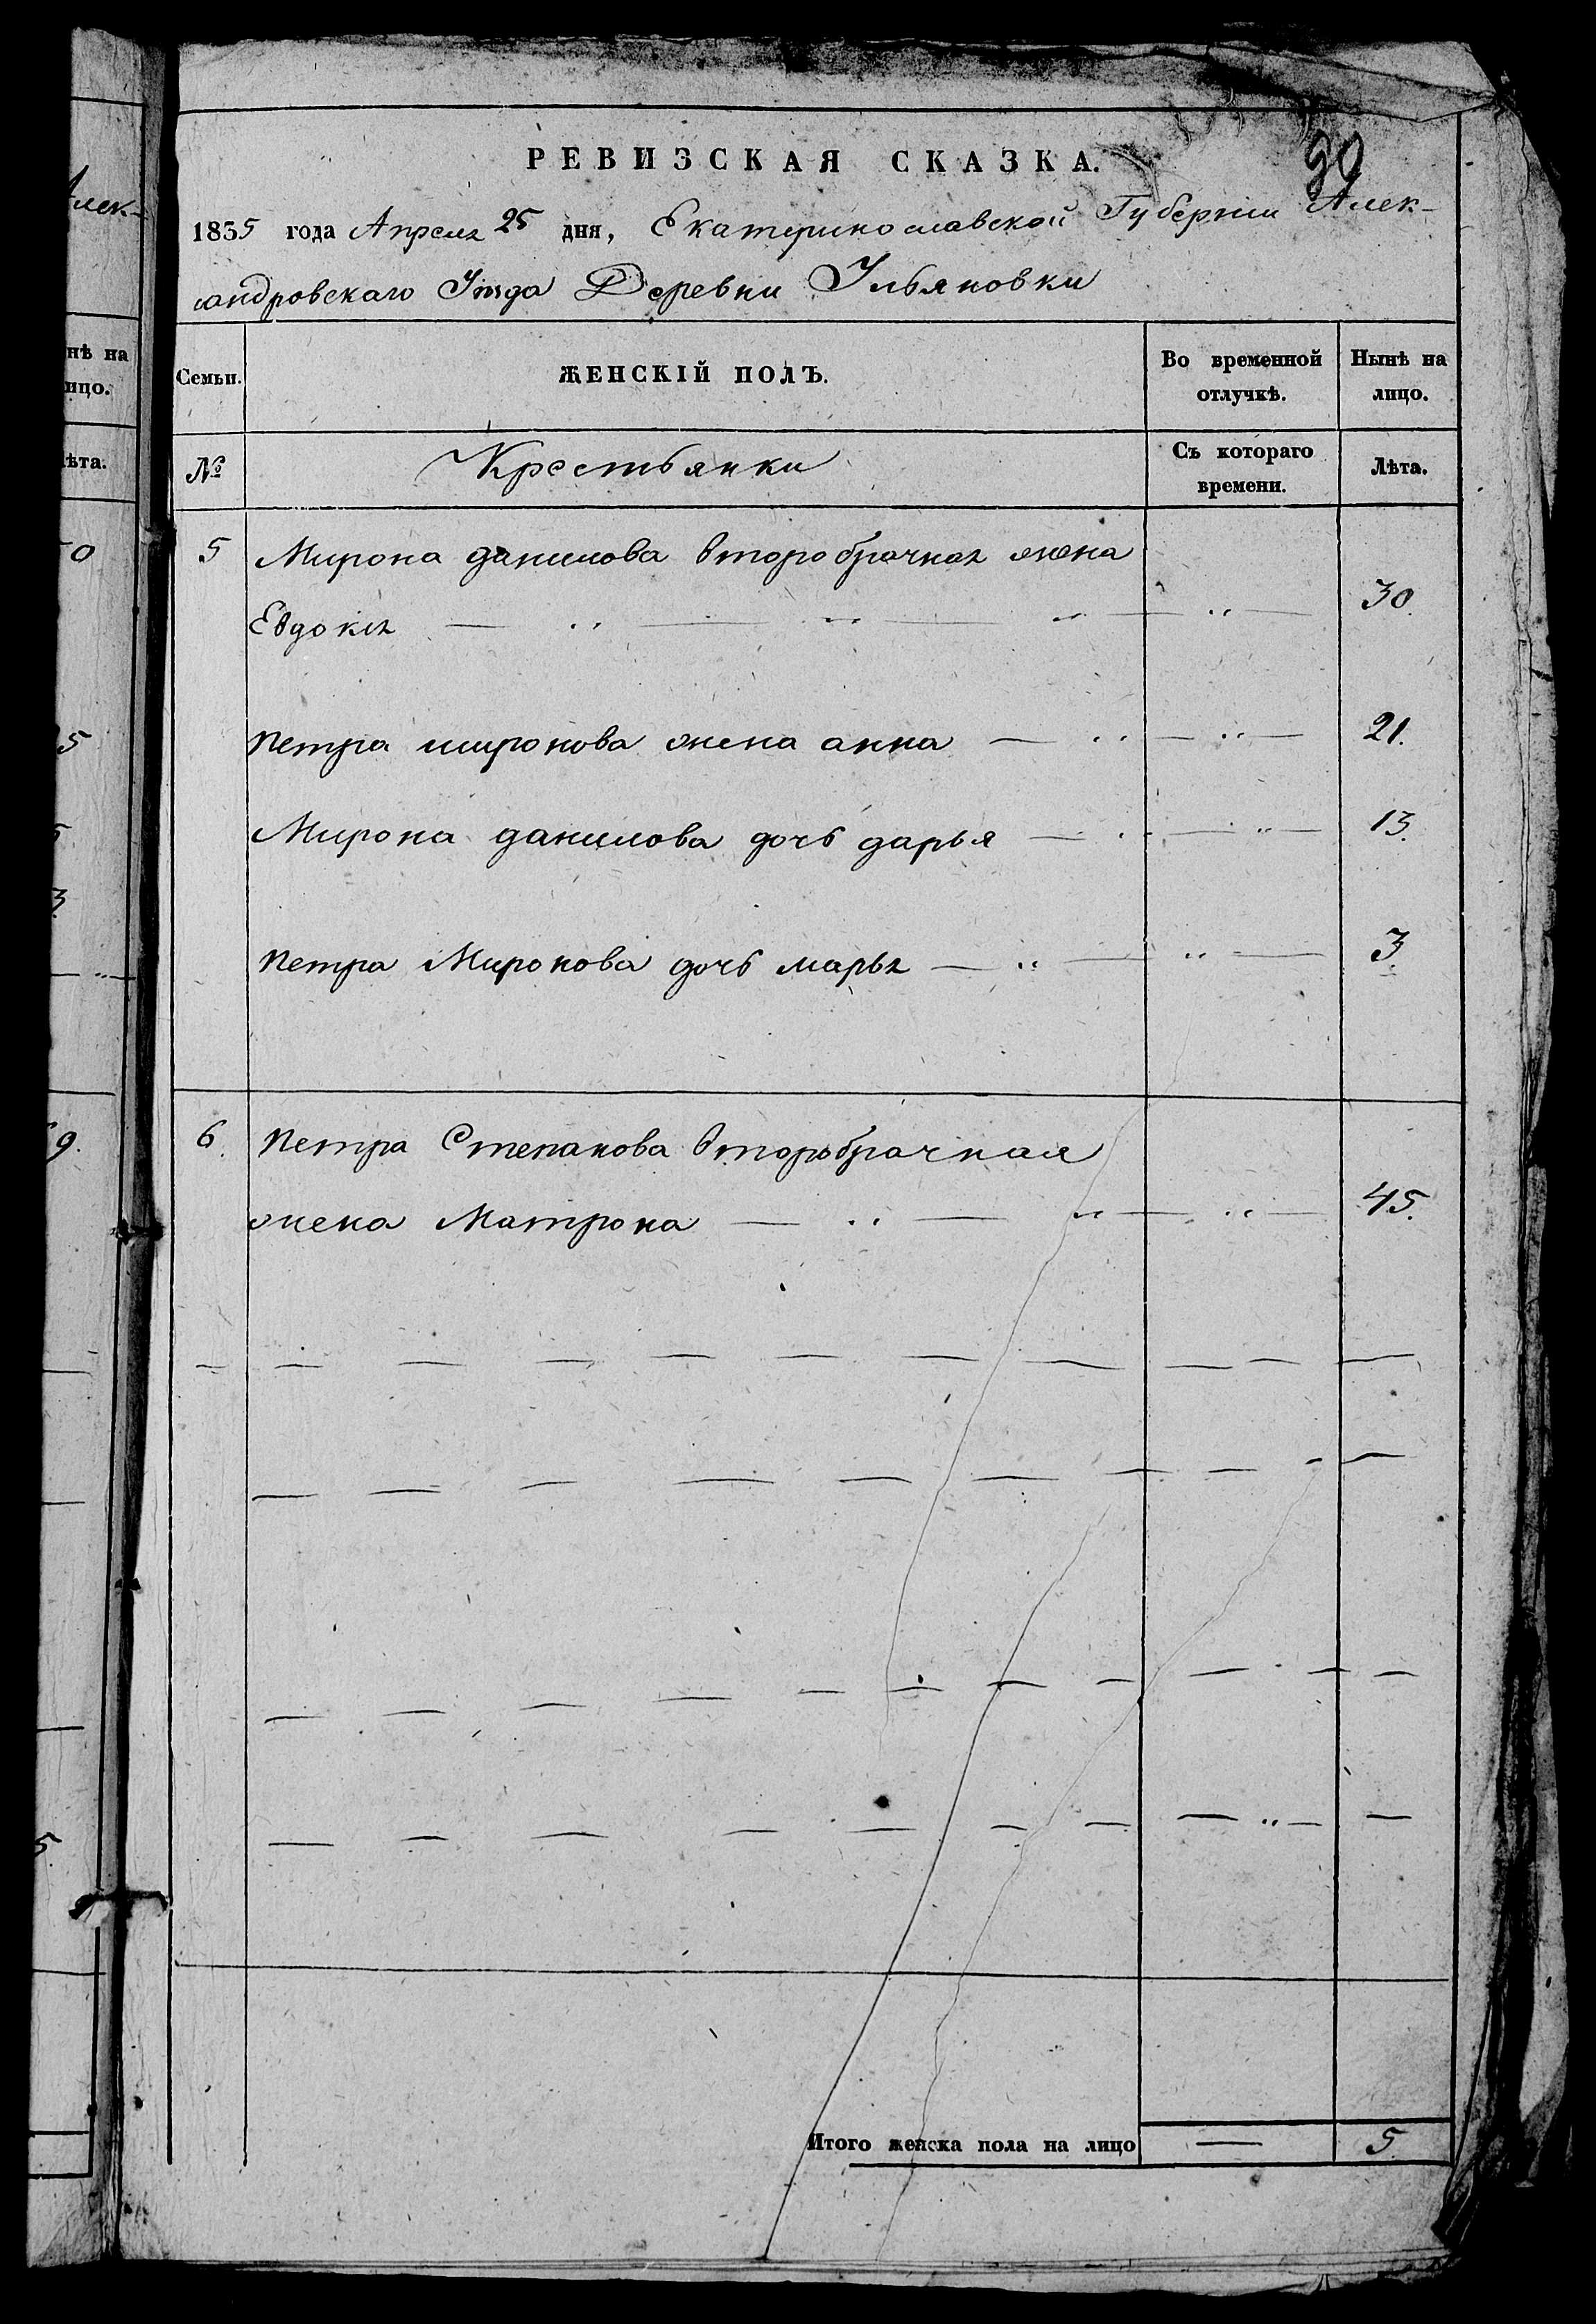 РЕВИЗСКАЯ СКАЗКА.
1835 года Апреля 25 дня, Екатеринославской Губернiи Алек-
сандровскаго Уѣзда Деревни Ульяновки
Семьи.
ЖЕНСКІЙ ПОЛЪ.
Во временной
отлучкѣ.
Нынѣ на
лицо.
№
Крестьянки
Съ котораго
времени.
Лѣта.
5 Мирона данилова второбрачная жена
Евдокiя — „ — „ — „ — „ — 30.
петра миронова жена анна — „ — „ — 21.
Мирона данилова дочь дарья — „ — „ — 13.
петра Миронова дочь марья — „ — „ — 3.
6. петра Степанова второбрачная
жена Матрона — „ — „ — „ — 45.
Итого женска пола на лицо — 5